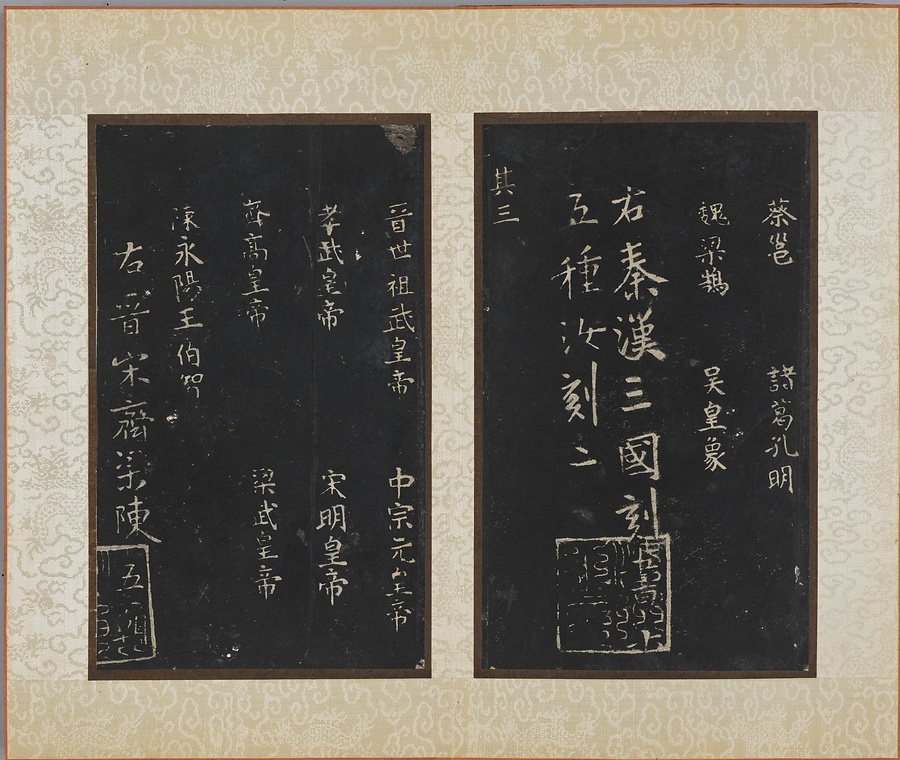 蔡邕 諸葛孔明
魏梁鵠 吴皇象
右秦漢三國刻
五種汝刻二
其三
晉世祖武皇帝 中宗元皇帝
孝武皇帝 宋明皇帝
齊高皇帝 梁武皇帝
陳永陽王伯智
右晉宋齊梁陳
五